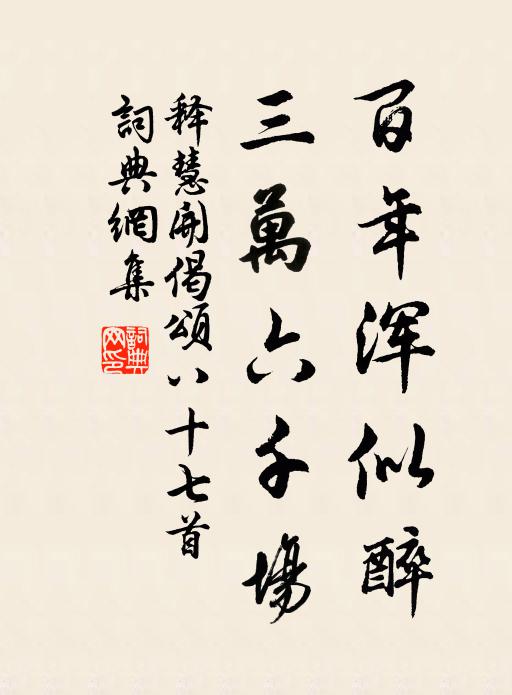 百年浑似醉
三萬六千場
释慧開偈頌八十七首
詞典網集
詞典网印